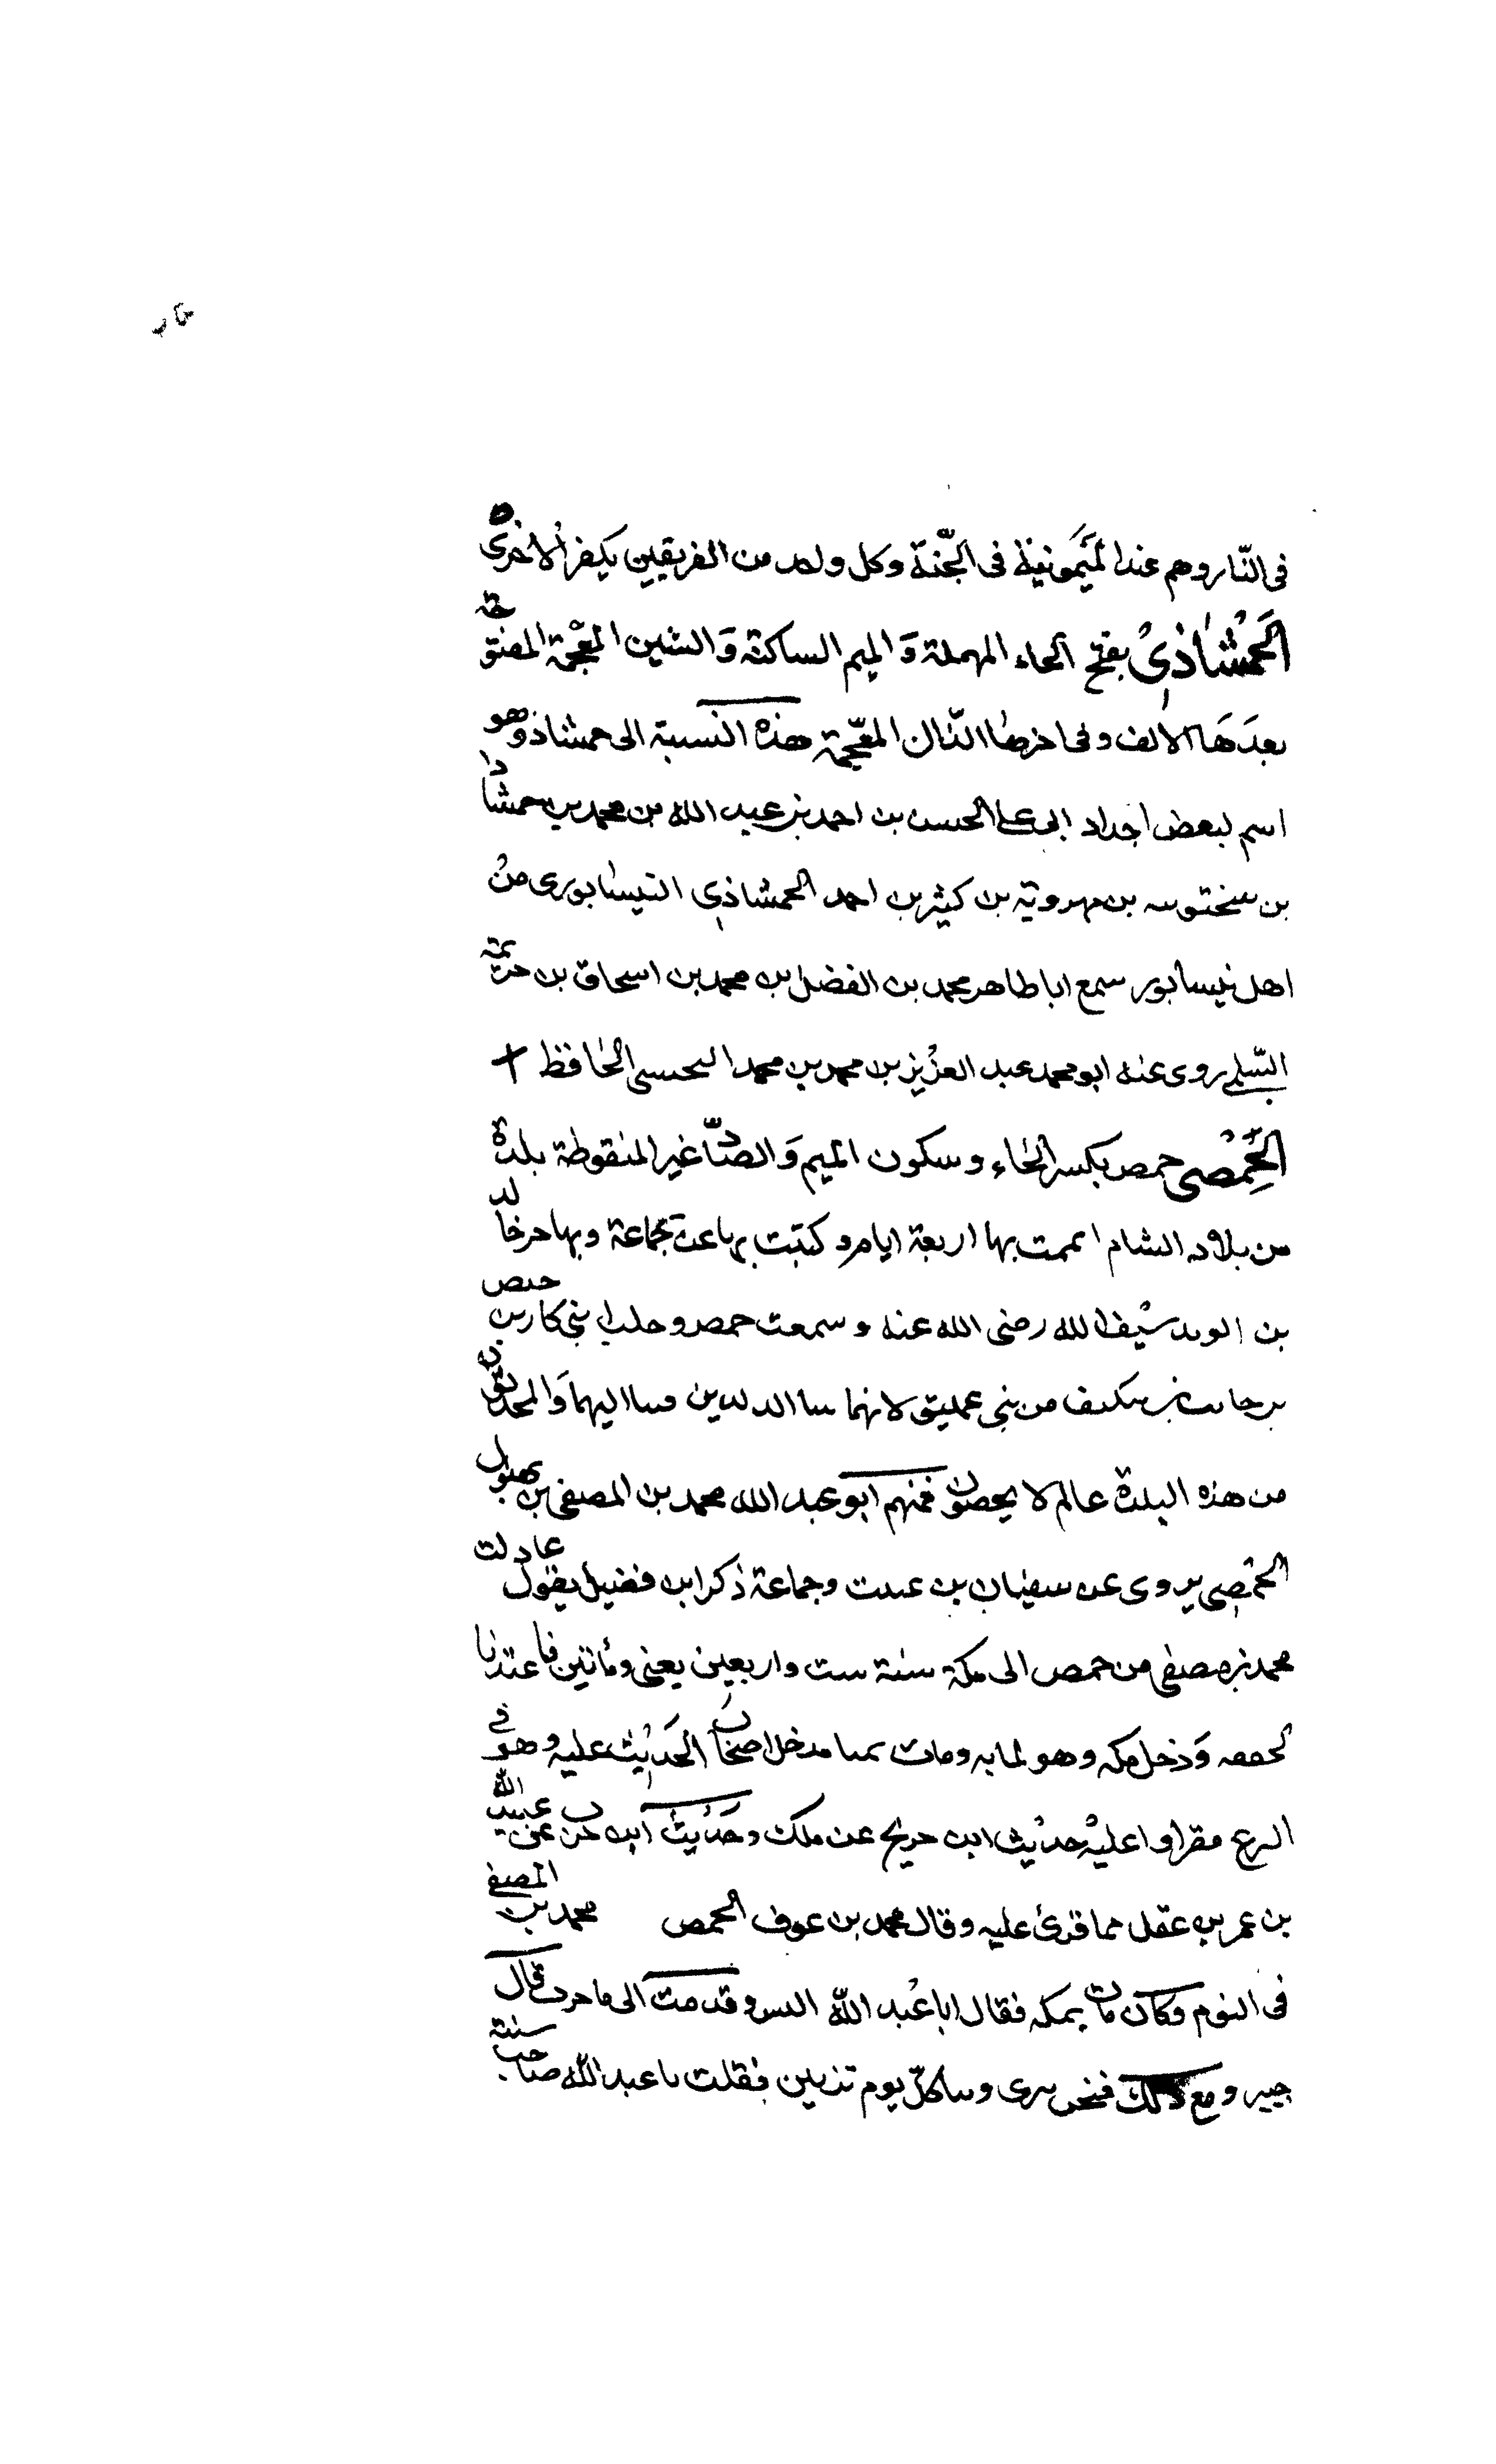 في النّار وهم عند الميَمُونية في الجّنة وكل واحد من الفريقين يكفر الاخرى
الَحمْشَاذِيُ بفتح الحاء المهملة وَالميم الساكنة وَالشين المعجمة المفتوحة
بعدَهَا الالف وفي اخرها الذّال المعجّمة هذه النسبة الى حمشاذ وهو
اسم لبعض اجداد ابي علي الحسن بن احمد بن عبد الله بن محمد بن حمشاد
بن سختويه بن مهرويه بن كثير بن احمد الحمشاذي النيسابوري من
اهل نيسابور سمع ابا طاهر محمد بن الفضل بن محمد بن اسحاق بن خزيمة
السّلمي روى عنه ابو محمد عبد العزيز بن محمد بن محمد النحسبي الحافظ
الَحِمْصي حمص بكسر الحاء وسكون الميم وَالصّاد غير المنقوطة بلدة
من بلاد الشام اقمت بها اربعة ايام وكتبت بها عن جماعة وبها مر خالد
بن الوليد سيف الله رضى الله عنه وسمعت حمص وحلب ابني حمص
من بني عمليق لانهما اليهما وَالمحدثون
من هذه البلدة عالم لا يحصون فمنهم ابو عبد الله محمد بن المصفى بن بهلول
الحمصي يروى عن سفيان بن عيينة وجماعة ذكر ابن فضيل يقول عادلت
محمد بن مصفى من حمص الى مكة سنة ست واربعين يعني ومأتين فاعتدنا
وَدخل مكه وهو لما به ومات فدخل اصحاب الحَديث عليه وهو في
النزع فقراوا عليه حديث ابن جريج عن ملك وحَديث ابن حرب عن عبيد الله
بن عمر مما قرئ عليه وقال محمد بن عوف الحمص محمد بن المصفي
في النوم وكان مات بمكه فقال ابا عُبد الله اليس وقد مت الى ما صرت قال
خير ومع ذلك فنحن نرى ربنا كلّ يوم فقلت يا عبد الله صاحب سنة